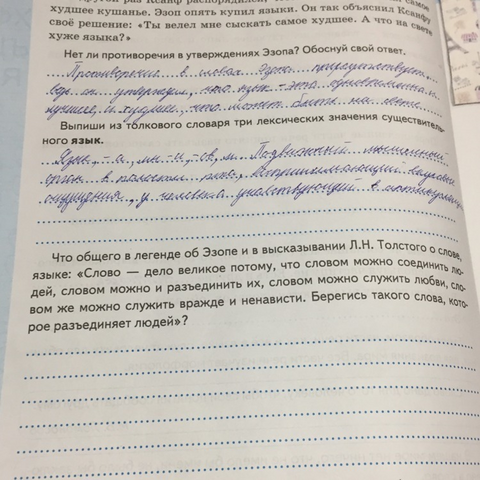 другой раз Ксанф распорядился, самое
худшее кушанье. Эзоп опять купил языки. Он так объяснил Ксанфу
своё решение: «Ты велел мне сыскать самое худшее. А что на свете
хуже языка?»
Нет ли противоречия в утверждениях Эзопа? Обоснуй свой ответ.
Противоречие в словах Эзопа присутствует,
ведь он утверждал, что язык – это одновременно
лучшее, и худшее, что может быть на свете.
Выпиши из толкового словаря три лексических значения существитель-
ного язык.
Язык, -а, мн -и, -ов, м. Подвижный мышечный
орган в полости рта, воспринимающий вкусовые
ощущения, у человека участвующий в артикуляции
Что общего в легенде об Эзопе и в высказывании Л.Н. Толстого о слове,
языке: «Слово — дело великое потому, что словом можно соединить лю-
дей, словом можно и разъединить их, словом можно служить любви, сло-
вом же можно служить вражде и ненависти. Берегись такого слова, кото-
рое разъединяет людей»?